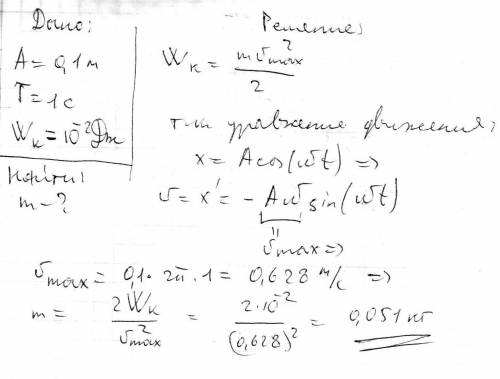 Дано:
A = 0,1 м
T = 1 с
Wк = 10⁻² Дж
Найти:
m – ?
Решение:
Wк = mυ²max / 2
тип уравнение движения:
x = A cos(ωt) =>
υ = x' = – Aω sin(ωt)
"
υmax =>
υmax = 0,1 · 2π · 1 = 0,628 м/с =>
m = 2Wк / υ²max = 2·10⁻² / (0,628)² = 0,051 кг